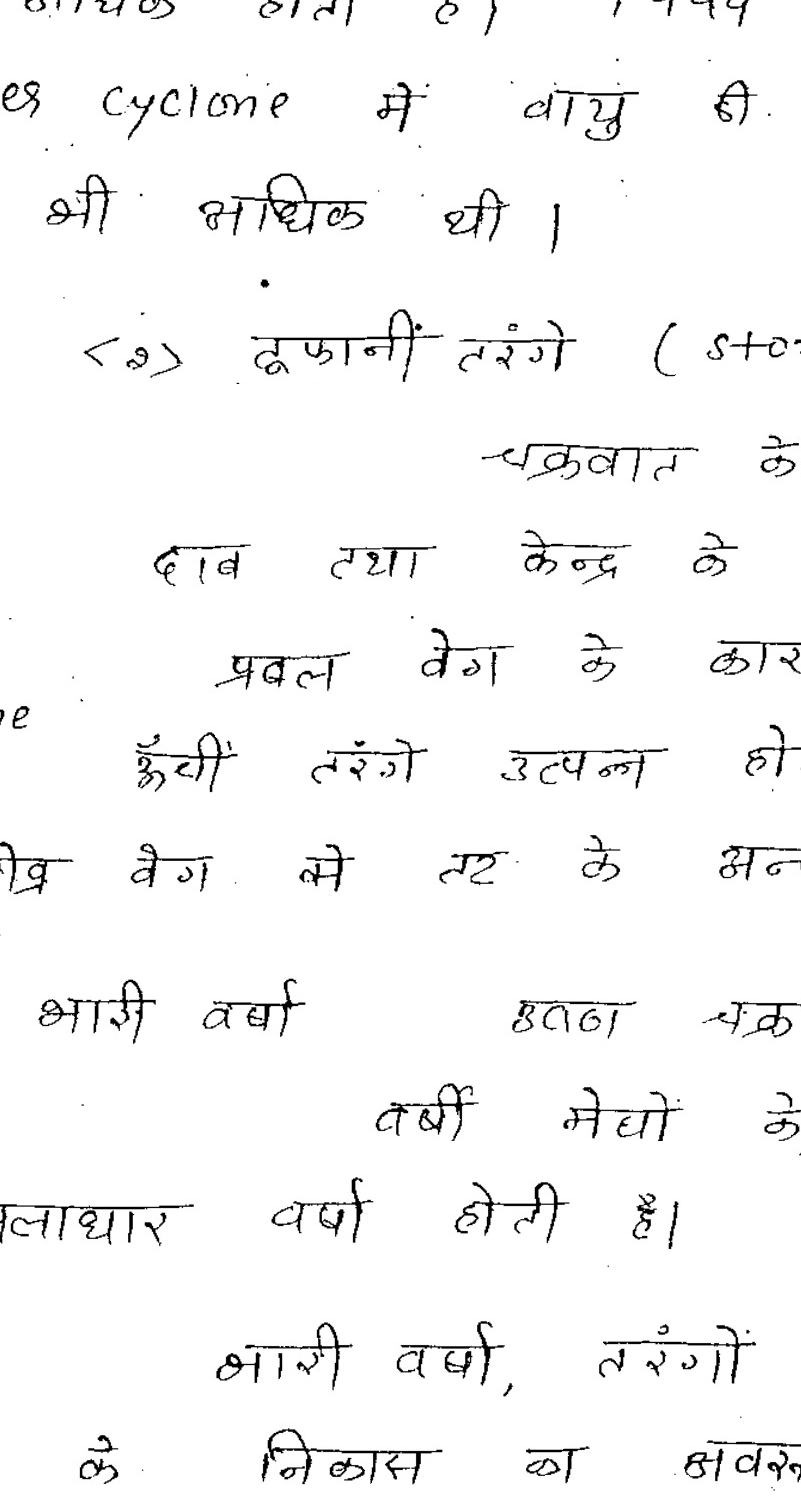 es cyclone में वायु की
भी अधिक थी ।
<२> तूफानीं तरंगे ( sto
चक्रवात के
दाब तथा केन्द्र के
प्रबल वेग के कार
ऊँचीं तरंगे उत्पन्न हो
वेग से तट के अन
भारी वर्षा उतण चक्र
वर्षी मेघों के
लाधार वर्षा होती है।
भारी वर्षा, तरंगों
के निकास का अवरू